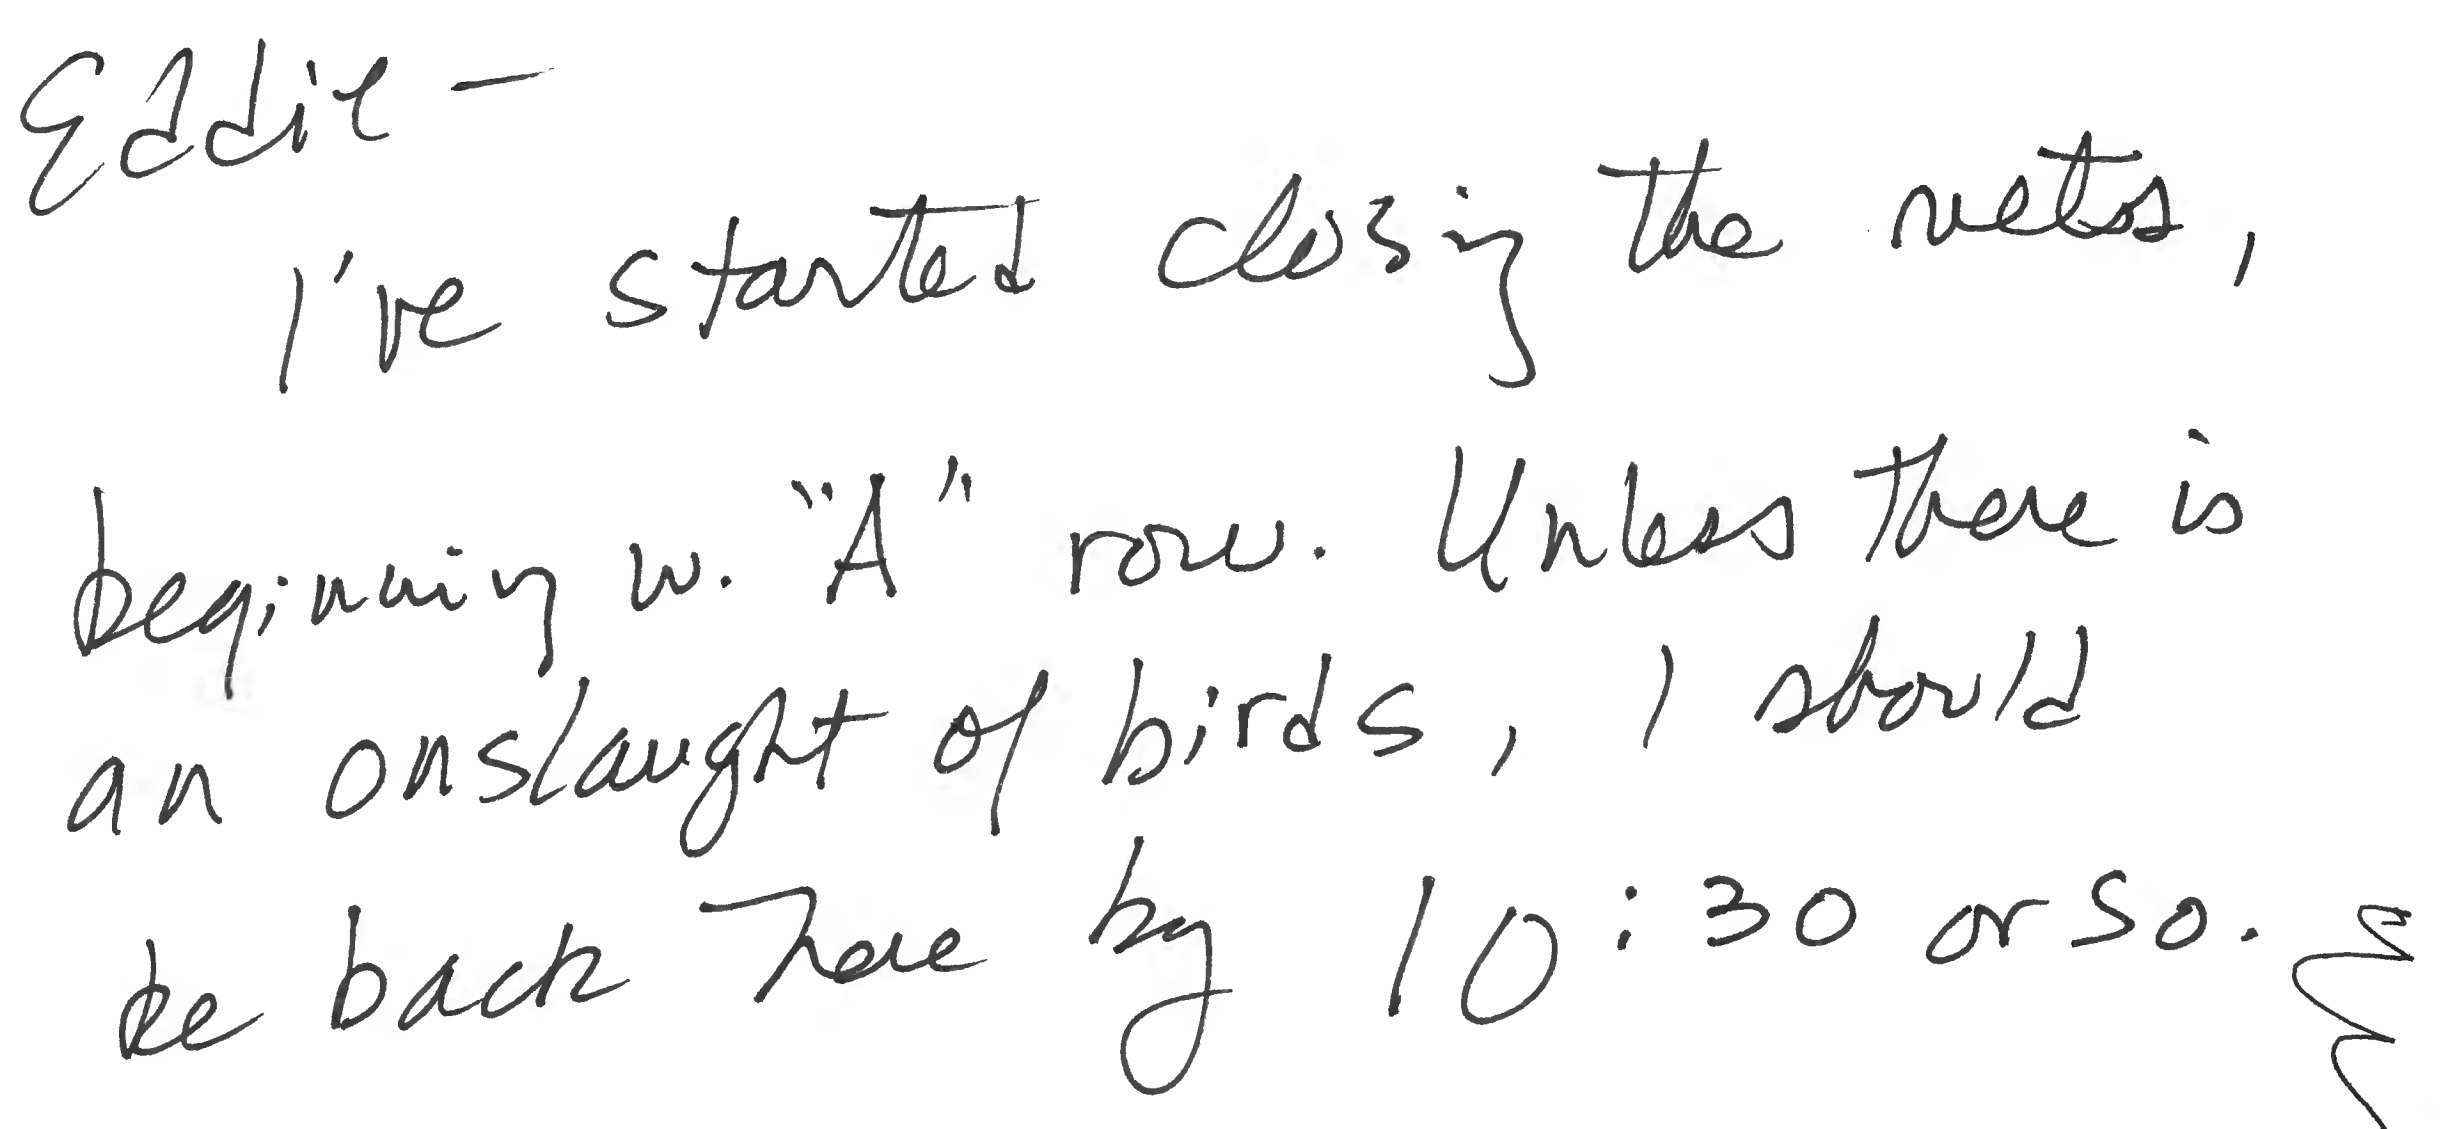 Eddie —
I've started closing the nets,
beginning w. "A" row. Unless there is
an onslaught of birds, I should
be back here by 10:30 or so.